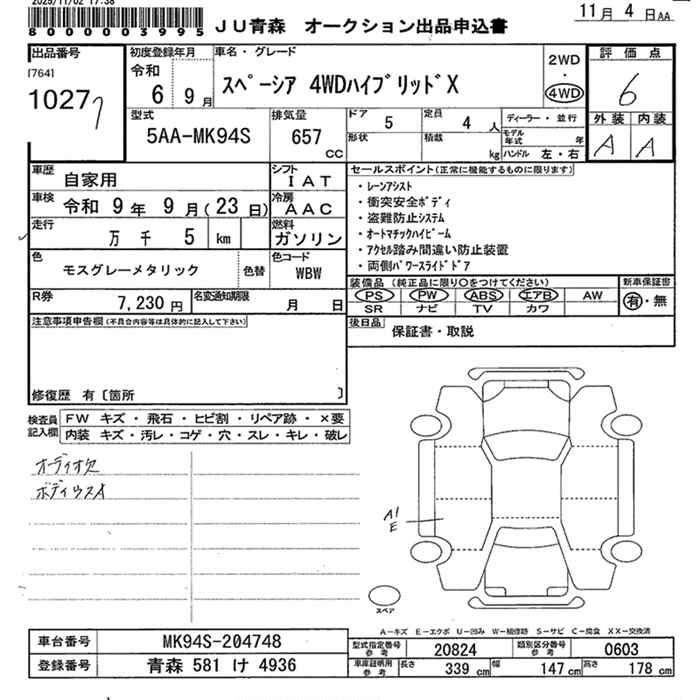 2025/11/02 17:38
8000003995
JU青森 オークション出品申込書
11月 4日AA
出品番号
[764]
10277
初度登録年月
令和
6 9月
車名・グレード
スペーシア 4WDハイブリッドX
2WD
・
4WD
評価点
6
外装 内装
A A
型式
5AA-MK94S
排気量
657
CC
ドア 5
形状
定員 4 人
積載 kg
ディーラー・並行
モデル年式 年
ハンドル 左・右
車歴 自家用
シフト IAT
車検 令和 9年 9月(23日)
冷房 AAC
走行 万 千 5 km
燃料 ガソリン
色 モスグレーメタリック
色替
色コード WBW
R券 7,230円
名変通知期限 月 日
セールスポイント(正常に機能するものに限ります)
・レーンアシスト
・衝突安全ボディ
・盗難防止システム
・オートマチックハイビーム
・アクセル踏み間違い防止装置
・両側パワースライドドア
装備品(純正品に限り○をつけてください)
PS PW ABS エアB AW
SR ナビ TV カワ
新車保証書
有・無
後日品 保証書・取説
注意事項申告欄(不具合内容等は具体的に記入して下さい)
修復歴 有〔箇所 〕
検査員記入欄
FW キズ・飛石・ヒビ割・リペア跡・×要
内装 キズ・汚レ・コゲ・穴・スレ・キレ・破レ
オーディオ欠
ボディウスA
A1
E
スペア
A-キズ E-エクボ U-凹み W-補修跡 S-サビ C-腐食 XX-交換済
車台番号 MK94S-204748
登録番号 青森 581 け 4936
型式指定番号 参考 20824
類別区分番号 参考 0603
車庫証明用 参考
長さ 339 cm 幅 147 cm 高さ 178 cm